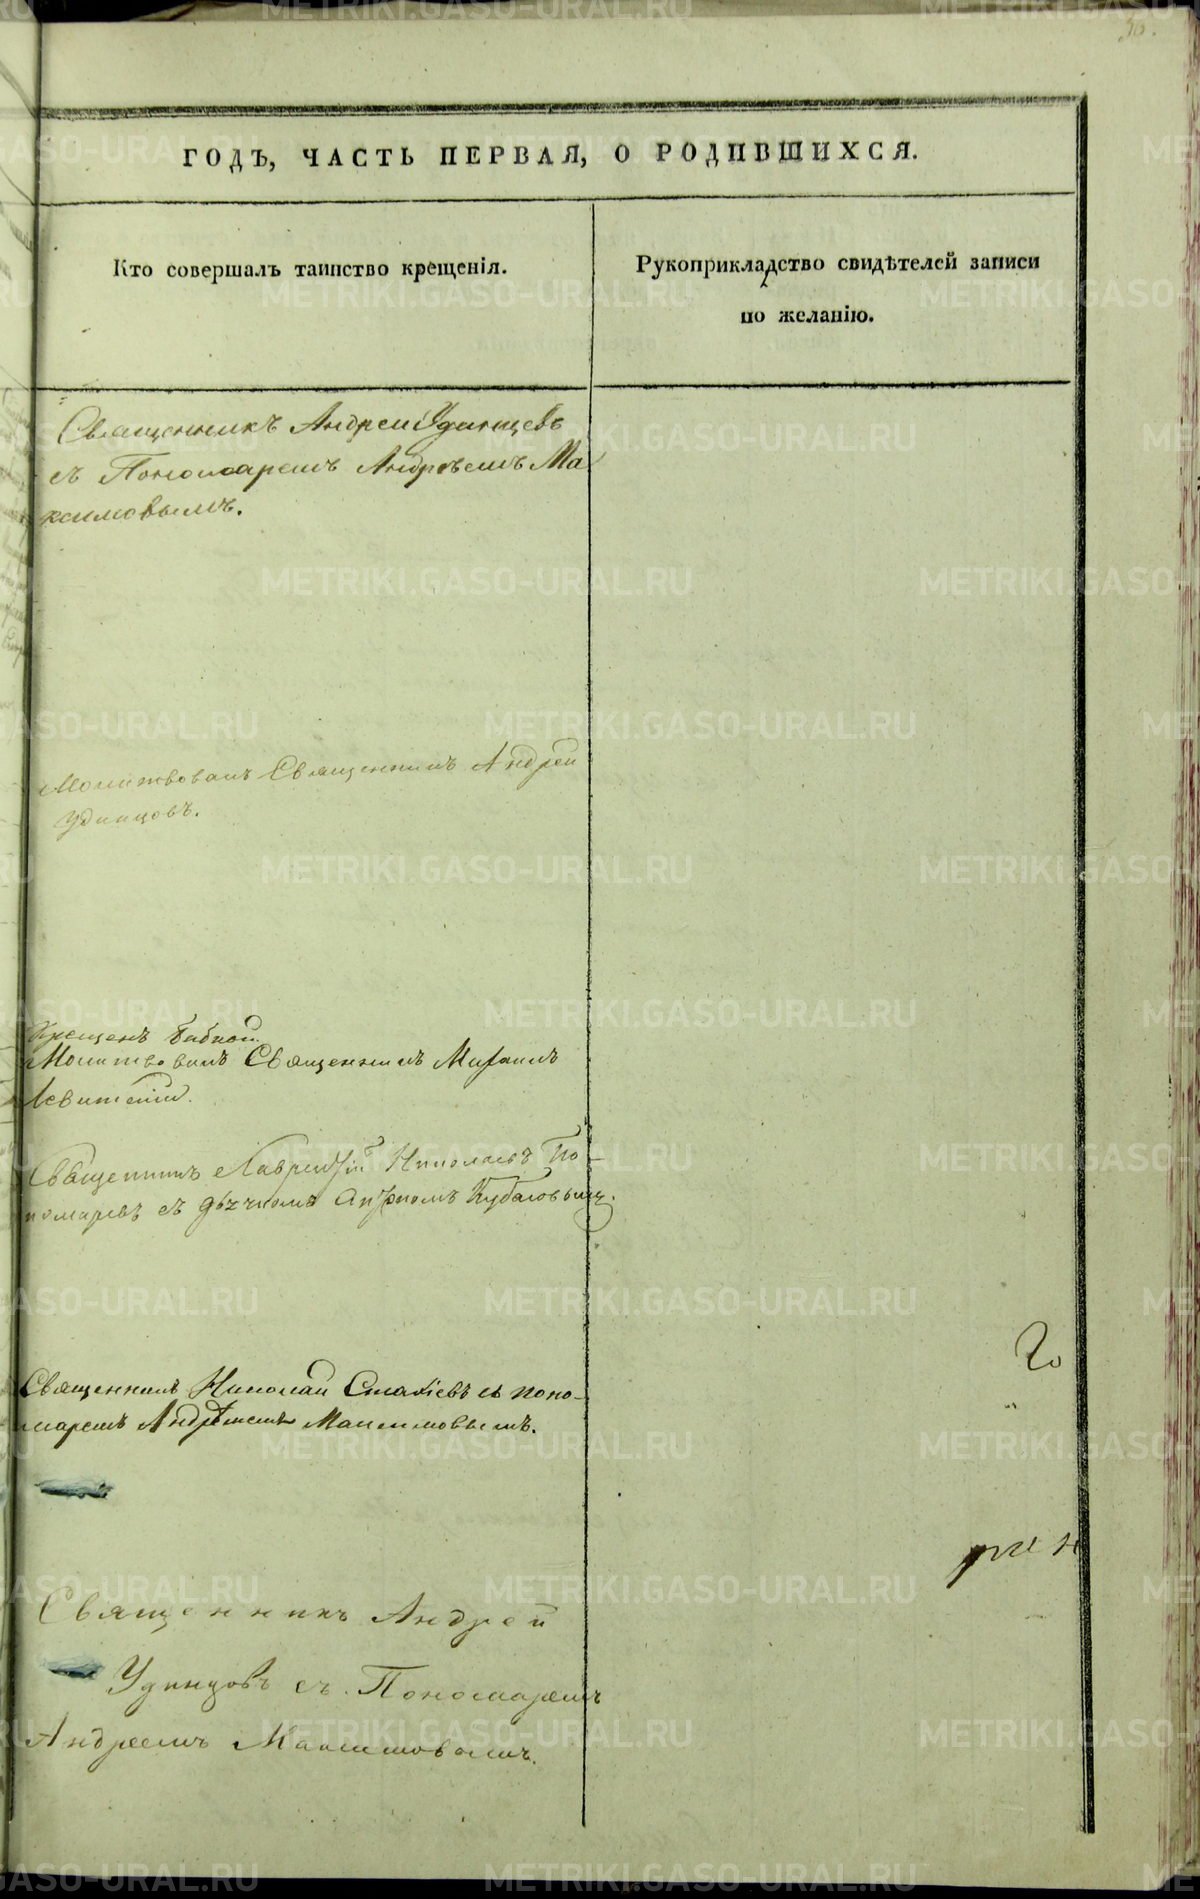 ГОДЪ, ЧАСТЬ ПЕРВАЯ, О РОДИВШИХСЯ.
Кто совершалъ таинство крещенія.
Рукоприкладство свидѣтелей записи
по желанію.
Священникъ Андрей Удинцевъ
съ Пономаремъ Андреемъ Ма
ксимовымъ.
Молитвовалъ Священникъ Андрей
Удинцовъ.
Крещенъ бабкой.
Молитвовалъ Священникъ Михаилъ
Левитскій.
Священникъ Лаврентій Николаевъ По-
номаревъ съ дьячкомъ
Священникъ Николай Стахіевъ съ поно-
маремъ Андреемъ Максимовымъ.
Священникъ Андрей
Удинцовъ съ Пономаремъ
Андреемъ Максимовымъ.
METRIKI.GASO-URAL.RU